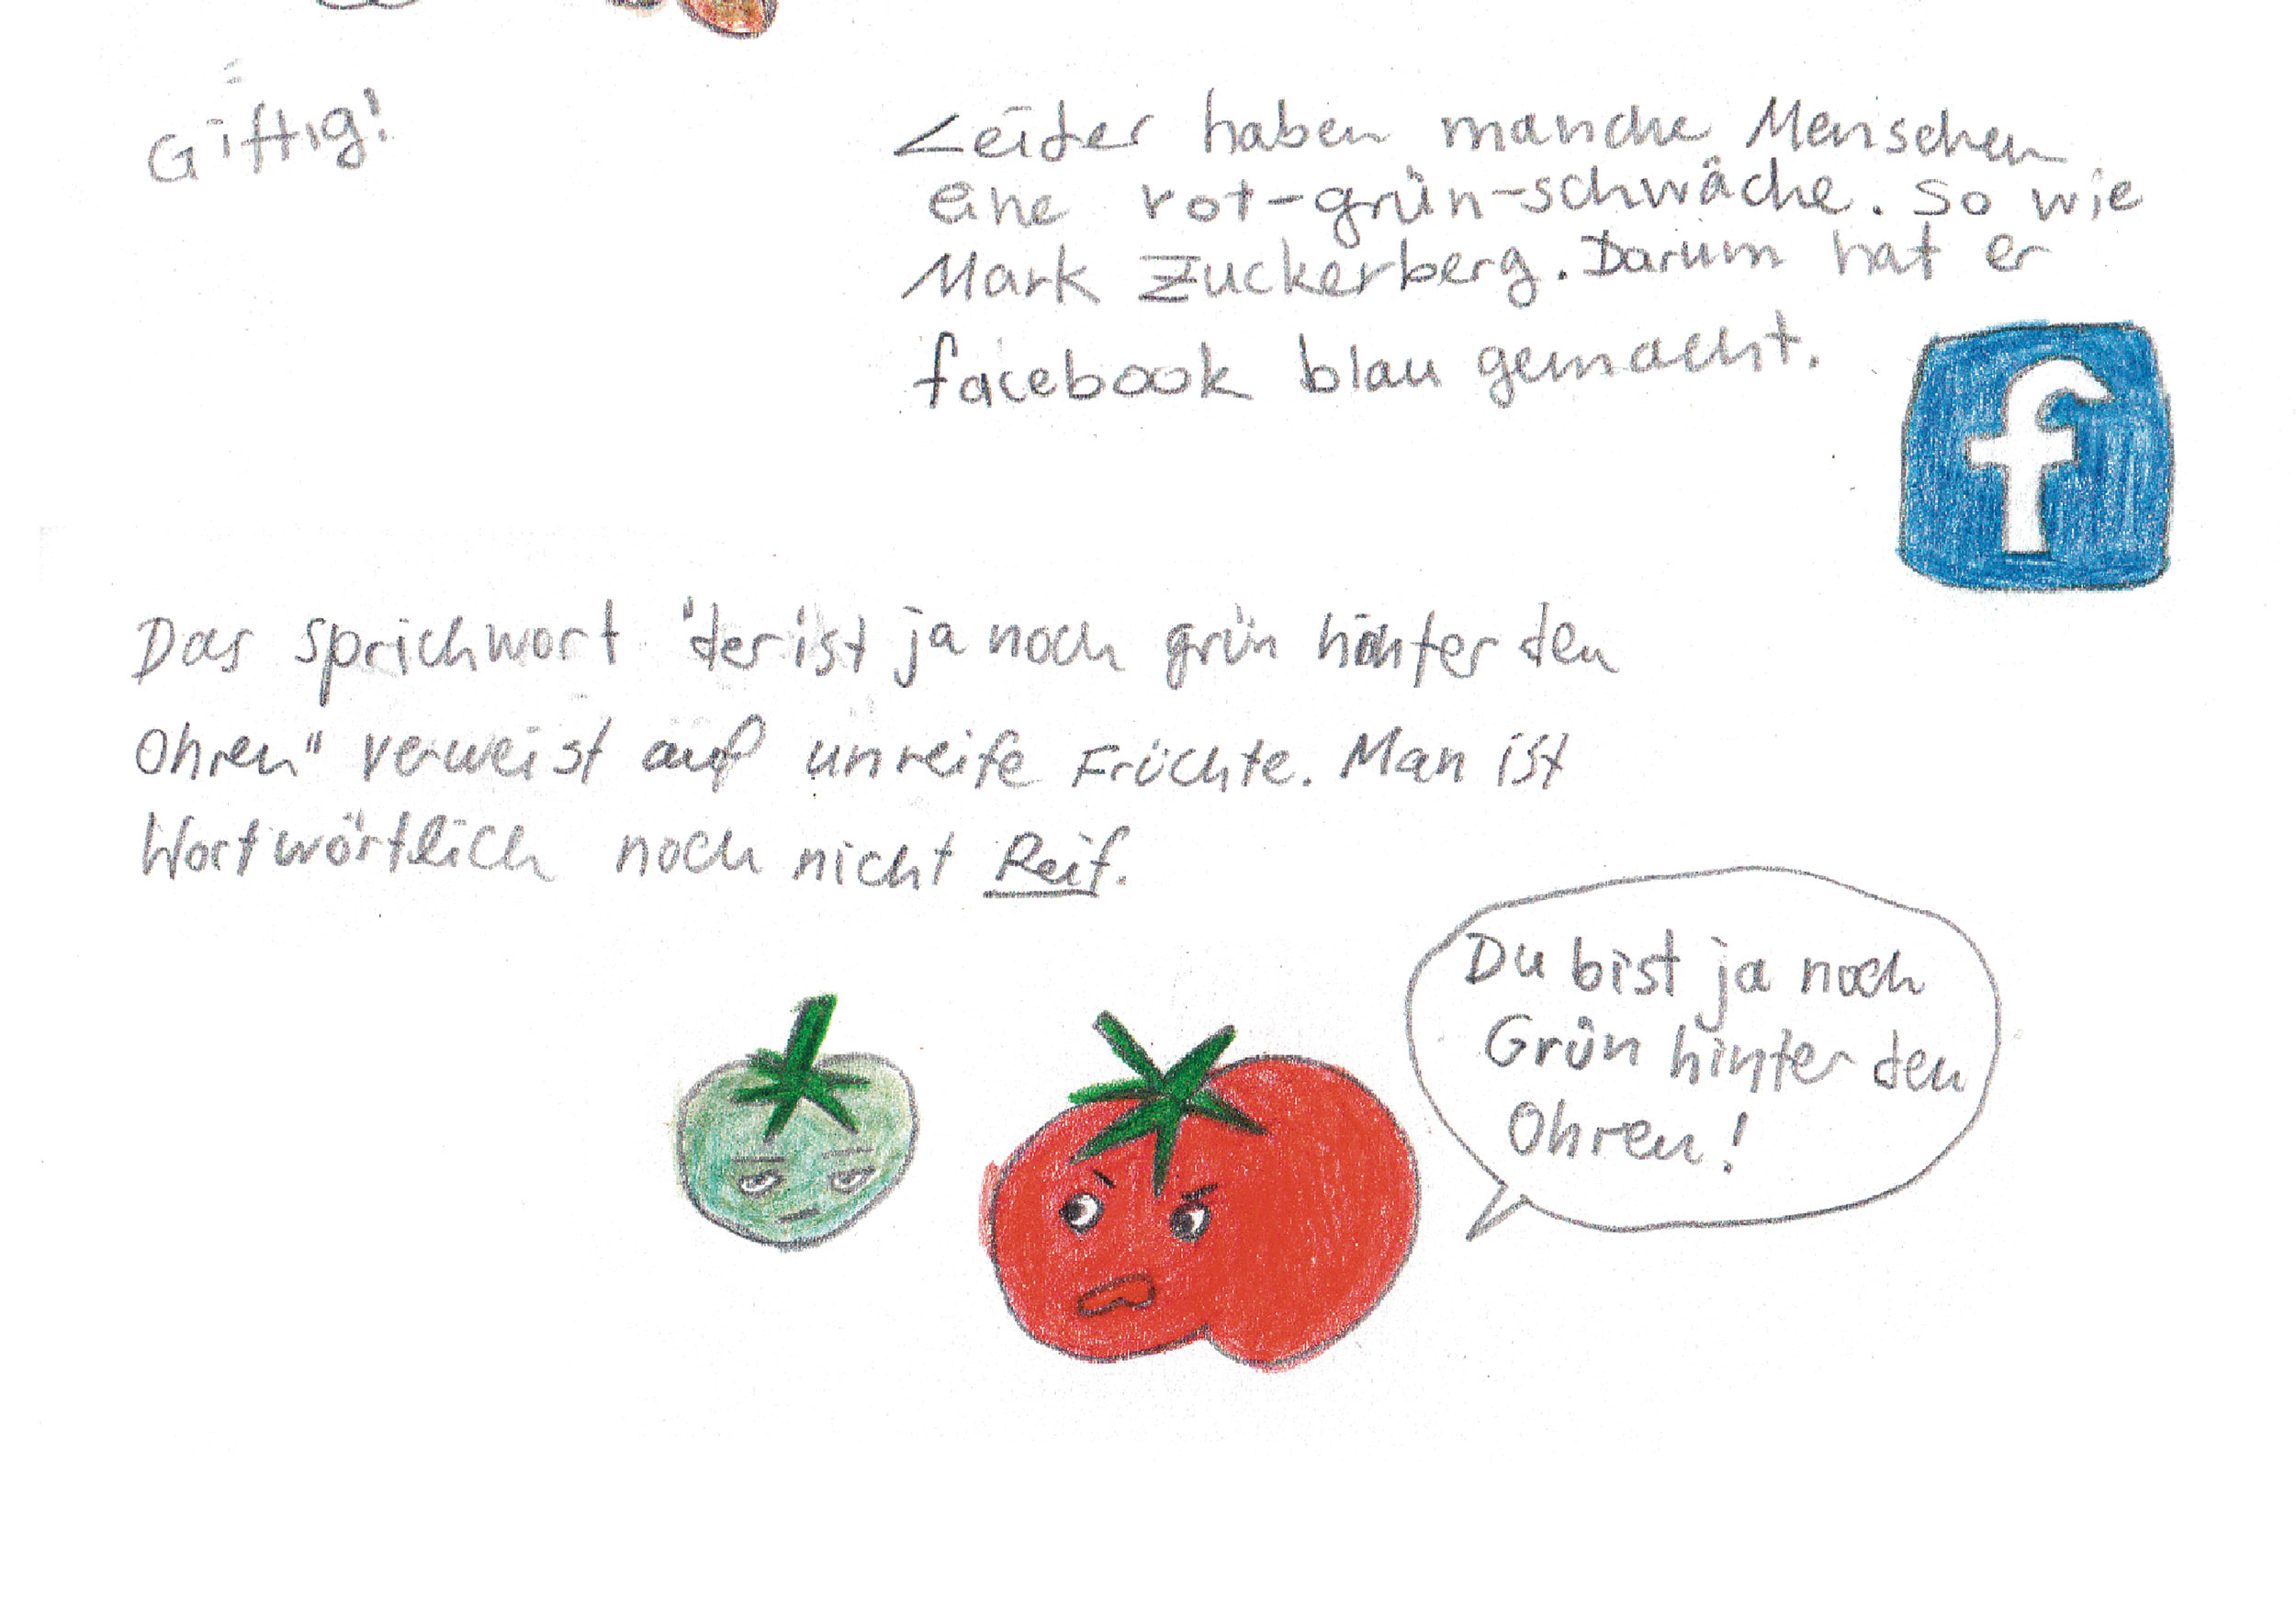 Giftig!
Leider haben manche Menschen
eine rot-grün-schwäche. So wie
Mark Zuckerberg. Darum hat er
facebook blau gemacht.
f
Das sprichwort "der ist ja noch grün hinter den
Ohren" verweist auf unreife Früchte. Man ist
Wortwörtlich noch nicht Reif.
Du bist ja noch
Grün hinter den
Ohren!